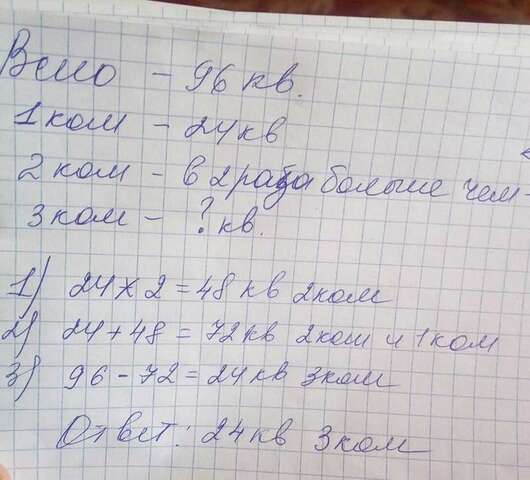 Всего – 96 кв.
1 ком – 24 кв
2 ком – в 2 раза больше чем -
3 ком – ? кв.
1) 24 x 2 = 48 кв 2 ком
2) 24 + 48 = 72 кв 2 ком и 1 ком
3) 96 - 72 = 24 кв 3 ком
Ответ: 24 кв 3 ком